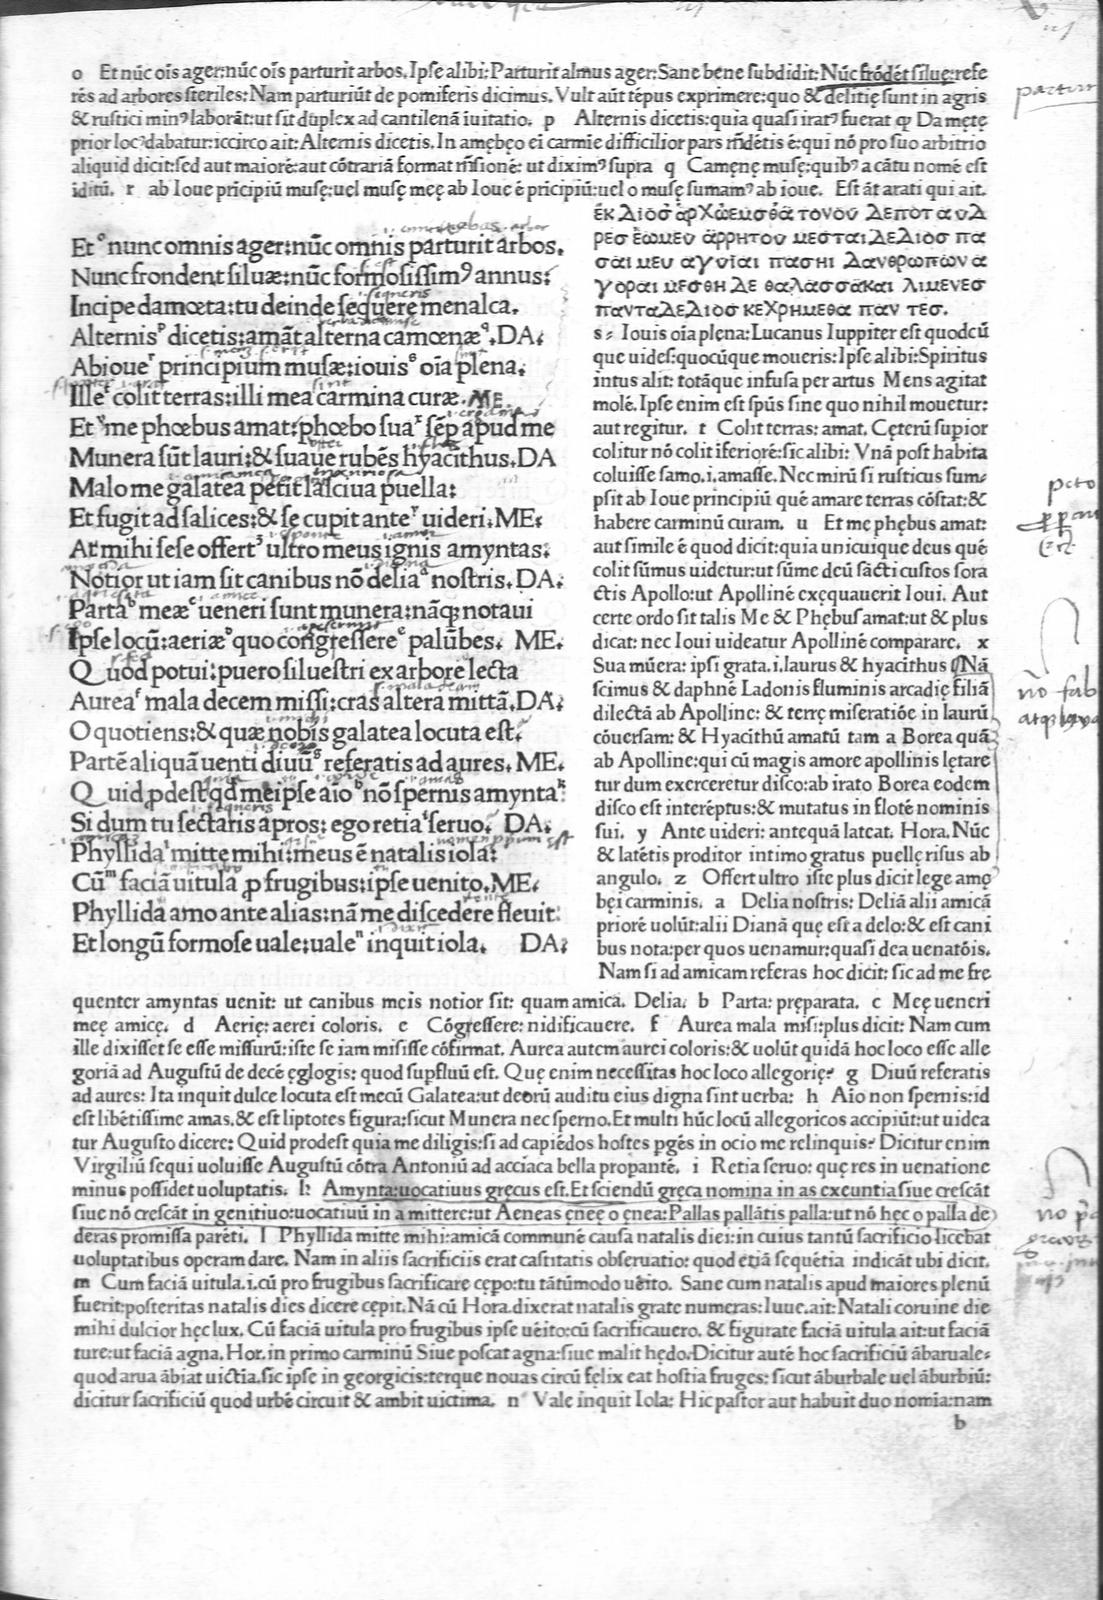 o Et nūc oīs ager:nūc oīs parturit arbos. Ipse alibi: Parturit almus ager: Sane bene subdidit: Nūc frōdēt siluę: refe
rēs ad arbores steriles: Nam parturiūt de pomiferis dicimus. Vult aūt tēpus exprimere:quo & delitię sunt in agris
& rustici minꝰ laborāt:ut sit duplex ad cantilenā iuitatio. p Alternis dicetis:quia quasi iratꝰ fuerat ꝙ Damętę
prior locꝰ dabatur:iccirco ait: Alternis dicetis. In amębęo ei carmīe difficilior pars rn̄dētis ē:qui nō pro suo arbitrio
aliquid dicit:sed aut maiorē:aut cōtrariā format rn̄sionē: ut diximꝰ supra q Camęnę musę:quibꝰ a cātu nomē est
iditū. r ab Ioue prīcipiū musę:uel musę męę ab Ioue ē prīcipiū:uel o musę sumamꝰ ab ioue. Est āt arati qui ait.
Et nunc omnis ager:nūc omnis parturit arbos.
Nunc frondent siluæ:nūc formosissimꝰ annus:
Incipe damœta:tu deinde sequere menalca.
Alternisᵖ dicetis:amāt alterna camœnæ�q.DA:
Ab ioueʳ principium musæ:iouisˢ oīa plena.
Ille colit terras:illi mea carmina curæ. ME.
Etᵘ me phœbus amat:phœbo suaˣ sēp apud me
Munera sūt lauri:& suaue rubēs hyacīthus.DA
Malo me galatea petit lasciua puella:
Et fugit ad salices:& se cupit anteʸ uideri.ME:
At mihi sese offertᶻ ultro meus ignis amyntas:
Notior ut iam sit canibus nō deliaᵃ nostris.DA:
Partaᵇ meæᶜ ueneri sunt munera:nāqȝ notaui
Ipse locū:aeriæᵈ quo congressereᵉ palūbes. ME:
Quod potui:puero siluestri ex arbore lecta
Aureaᶠ mala decem missi:cras altera mittā.DA:
O quotiens:& quæ nobis galatea locuta est:
Partē aliquā uenti diuūᵍ referatis ad aures. ME:
Quid ꝓdest:qd̄ me ipse aīoʰ nō spernis amyntaᵏ:
Si dum tu sectaris apros: ego retiaⁱ seruo. DA:
Phyllidaˡ mitte mihi:meus ē natalis iola:
Cūᵐ faciā uitula ꝓ frugibus:ipse uenito.ME:
Phyllida amo ante alias:nā me discedere fleuit:
Et longū formose uale:ualeⁿ inquit iola. DA:
ἐκ Διὸσ ἀρχώμεσθα τονου Δεποτ ανΔ
ρεσ ἐωμεν ἄρρητον μεσταιΔεΔιοσ πα
σαι μεν αγυῖαι πασηι Δανθρωπων α
γοραι μεσθη Δε θαλασσακαι λιμενεσ
πανταΔεΔιοσ κεχρημεθα παν τεσ.
s: Iouis oīa plena: Lucanus Iuppiter est quodcū
que uides:quocūque moueris: Ipse alibi: Spiritus
intus alit: totāque infusa per artus Mens agitat
molē. Ipse enim est spūs sine quo nihil mouetur:
aut regitur. t Colit terras: amat. Cęterū supior
colitur nō colit iferiorē: sic alibi: Vnā post habita
coluisse samo.i.amasse. Nec mirū si rusticus sum:
psit ab Ioue principiū quē amare terras cōstat:&
habere carminū curam. u Et me phębus amat:
aut simile ē quod dicit:quia unicuique deus quē
colit sūmus uidetur:ut sūme deū sācti custos sora
ctis Apollo:ut Apollinē exęquauerit Ioui. Aut
certe ordo sit talis Me & Phębus amat:ut & plus
dicat: nec Ioui uideatur Apollinē comparare. x
Sua mūera: ipsi grata.i.laurus & hyacīthus Nā
scimus & daphnē Ladonis fluminis arcadię filiā
dilectā ab Apolline: & terrę miseratiōe in laurū
cōuersam: & Hyacīthū amatū tam a Borea quā
ab Apolline:qui cū magis amore apollinis lętare
tur dum exerceretur disco:ab irato Borea eodem
disco est interēptus:& mutatus in florē nominis
sui. y Ante uideri: antequā lateat. Hora. Nūc
& latētis proditor intimo gratus puellę risus ab
angulo. z Offert ultro iste plus dicit lege amę
bęi carminis. a Delia nostris: Deliā alii amicā
priorē uolūt:alii Dianā quę est a delo:& est cani
bus nota:per quos uenamur:quasi dea uenatōis.
Nam si ad amicam referas hoc dicit: sic ad me fre
quenter amyntas uenit: ut canibus meis notior sit: quam amica. Delia. b Parta: pręparata. c Męę ueneri
męę amicę. d Aerię: aerei coloris. e Cōgressere: nidificauere. f Aurea mala misi:plus dicit: Nam cum
ille dixisset se esse missurū:iste se iam misisse cōfirmat. Aurea autem aurei coloris:& uolūt quidā hoc loco esse alle
goriā ad Augustū de decē ęglogis: quod supfluū est. Quę enim necessitas hoc loco allegorię? g Diuū referatis
ad aures: Ita inquit dulce locuta est mecū Galatea:ut deorū auditu eius digna sint uerba: h Aio non spernis:id
est libētissime amas.& est liptotes figura:sicut Munera nec sperno. Et multi hūc locū allegoricos accipiūt:ut uidea
tur Augusto dicere: Quid prodest quia me diligis:si ad capiēdos hostes pgēs in ocio me relinquis? Dicitur enim
Virgiliū sequi uoluisse Augustū cōtra Antoniū ad acciaca bella propantē. i Retia seruo: quę res in uenatione
minus possidet uoluptatis. k Amynta:uocatiuus gręcus est. Et sciendū gręca nomina in as exeuntia siue crescāt
siue nō crescāt in genitiuo:uocatiuū in a mittere:ut Aeneas ęnee o ęnea: Pallas pallātis palla:ut nō hęc o palla de
deras promissa parēti. l Phyllida mitte mihi:amicā communē causa natalis diei: in cuius tantū sacrificio licebat
uoluptatibus operam dare. Nam in aliis sacrificiis erat castitatis obseruatio: quod etiā sequētia indicāt ubi dicit.
m Cum faciā uitula.i.cū pro frugibus sacrificare cępo:tu tātūmodo uēito. Sane cum natalis apud maiores plenū
fuerit:posteritas natalis dies dicere cępit. Nā cū Hora.dixerat natalis grate numeras: Iuue.ait: Natali coruine die
mihi dulcior hęc lux. Cū faciā uitula pro frugibus ipse uēito:cū sacrificauero. & figurate faciā uitula ait:ut faciā
ture:ut faciā agna. Hor. in primo carminū Siue poscat agna:siue malit hędo. Dicitur autē hoc sacrificiū ābaruale:
quod arua ābiat uictia.sic ipse in georgicis:terque nouas circū fęlix eat hostia fruges: sicut āburbale uel āburbiū:
dicitur sacrificiū quod urbē circuit & ambit uictima. n Vale inquit Iola: Hic pastor aut habuit duo nomia:nam
b